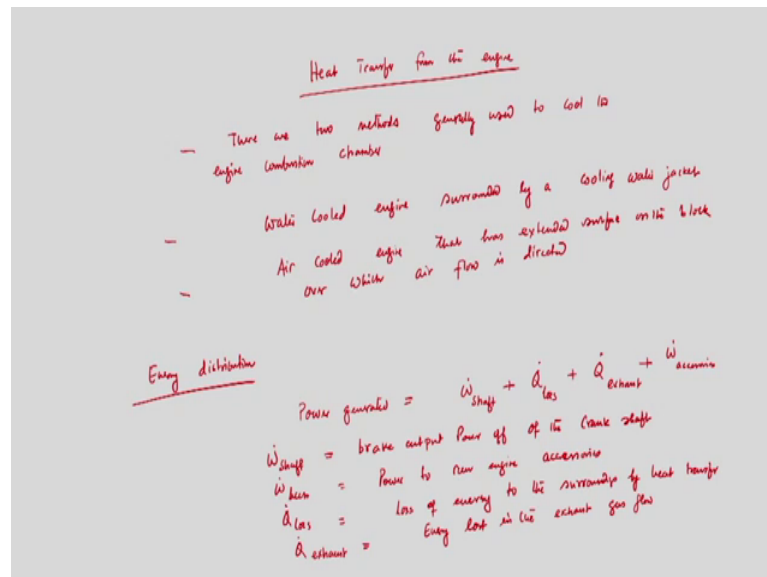 Heat Transfer from the engine
— There are two methods generally used to cool the
engine combustion chamber
— Water cooled engine surrounded by a cooling water jacket
— Air cooled engine that has extended surface on the block
over which air flow is directed
Energy distribution
Power generated = Ẇshaft + Q̇loss + Q̇exhaust + Ẇaccessories
Ẇshaft = brake output Power off of the Crank shaft
= Power to run engine accessories
Q̇loss = loss of energy to the surroundings by heat transfer
Q̇exhaust = Energy lost in the exhaust gas flow